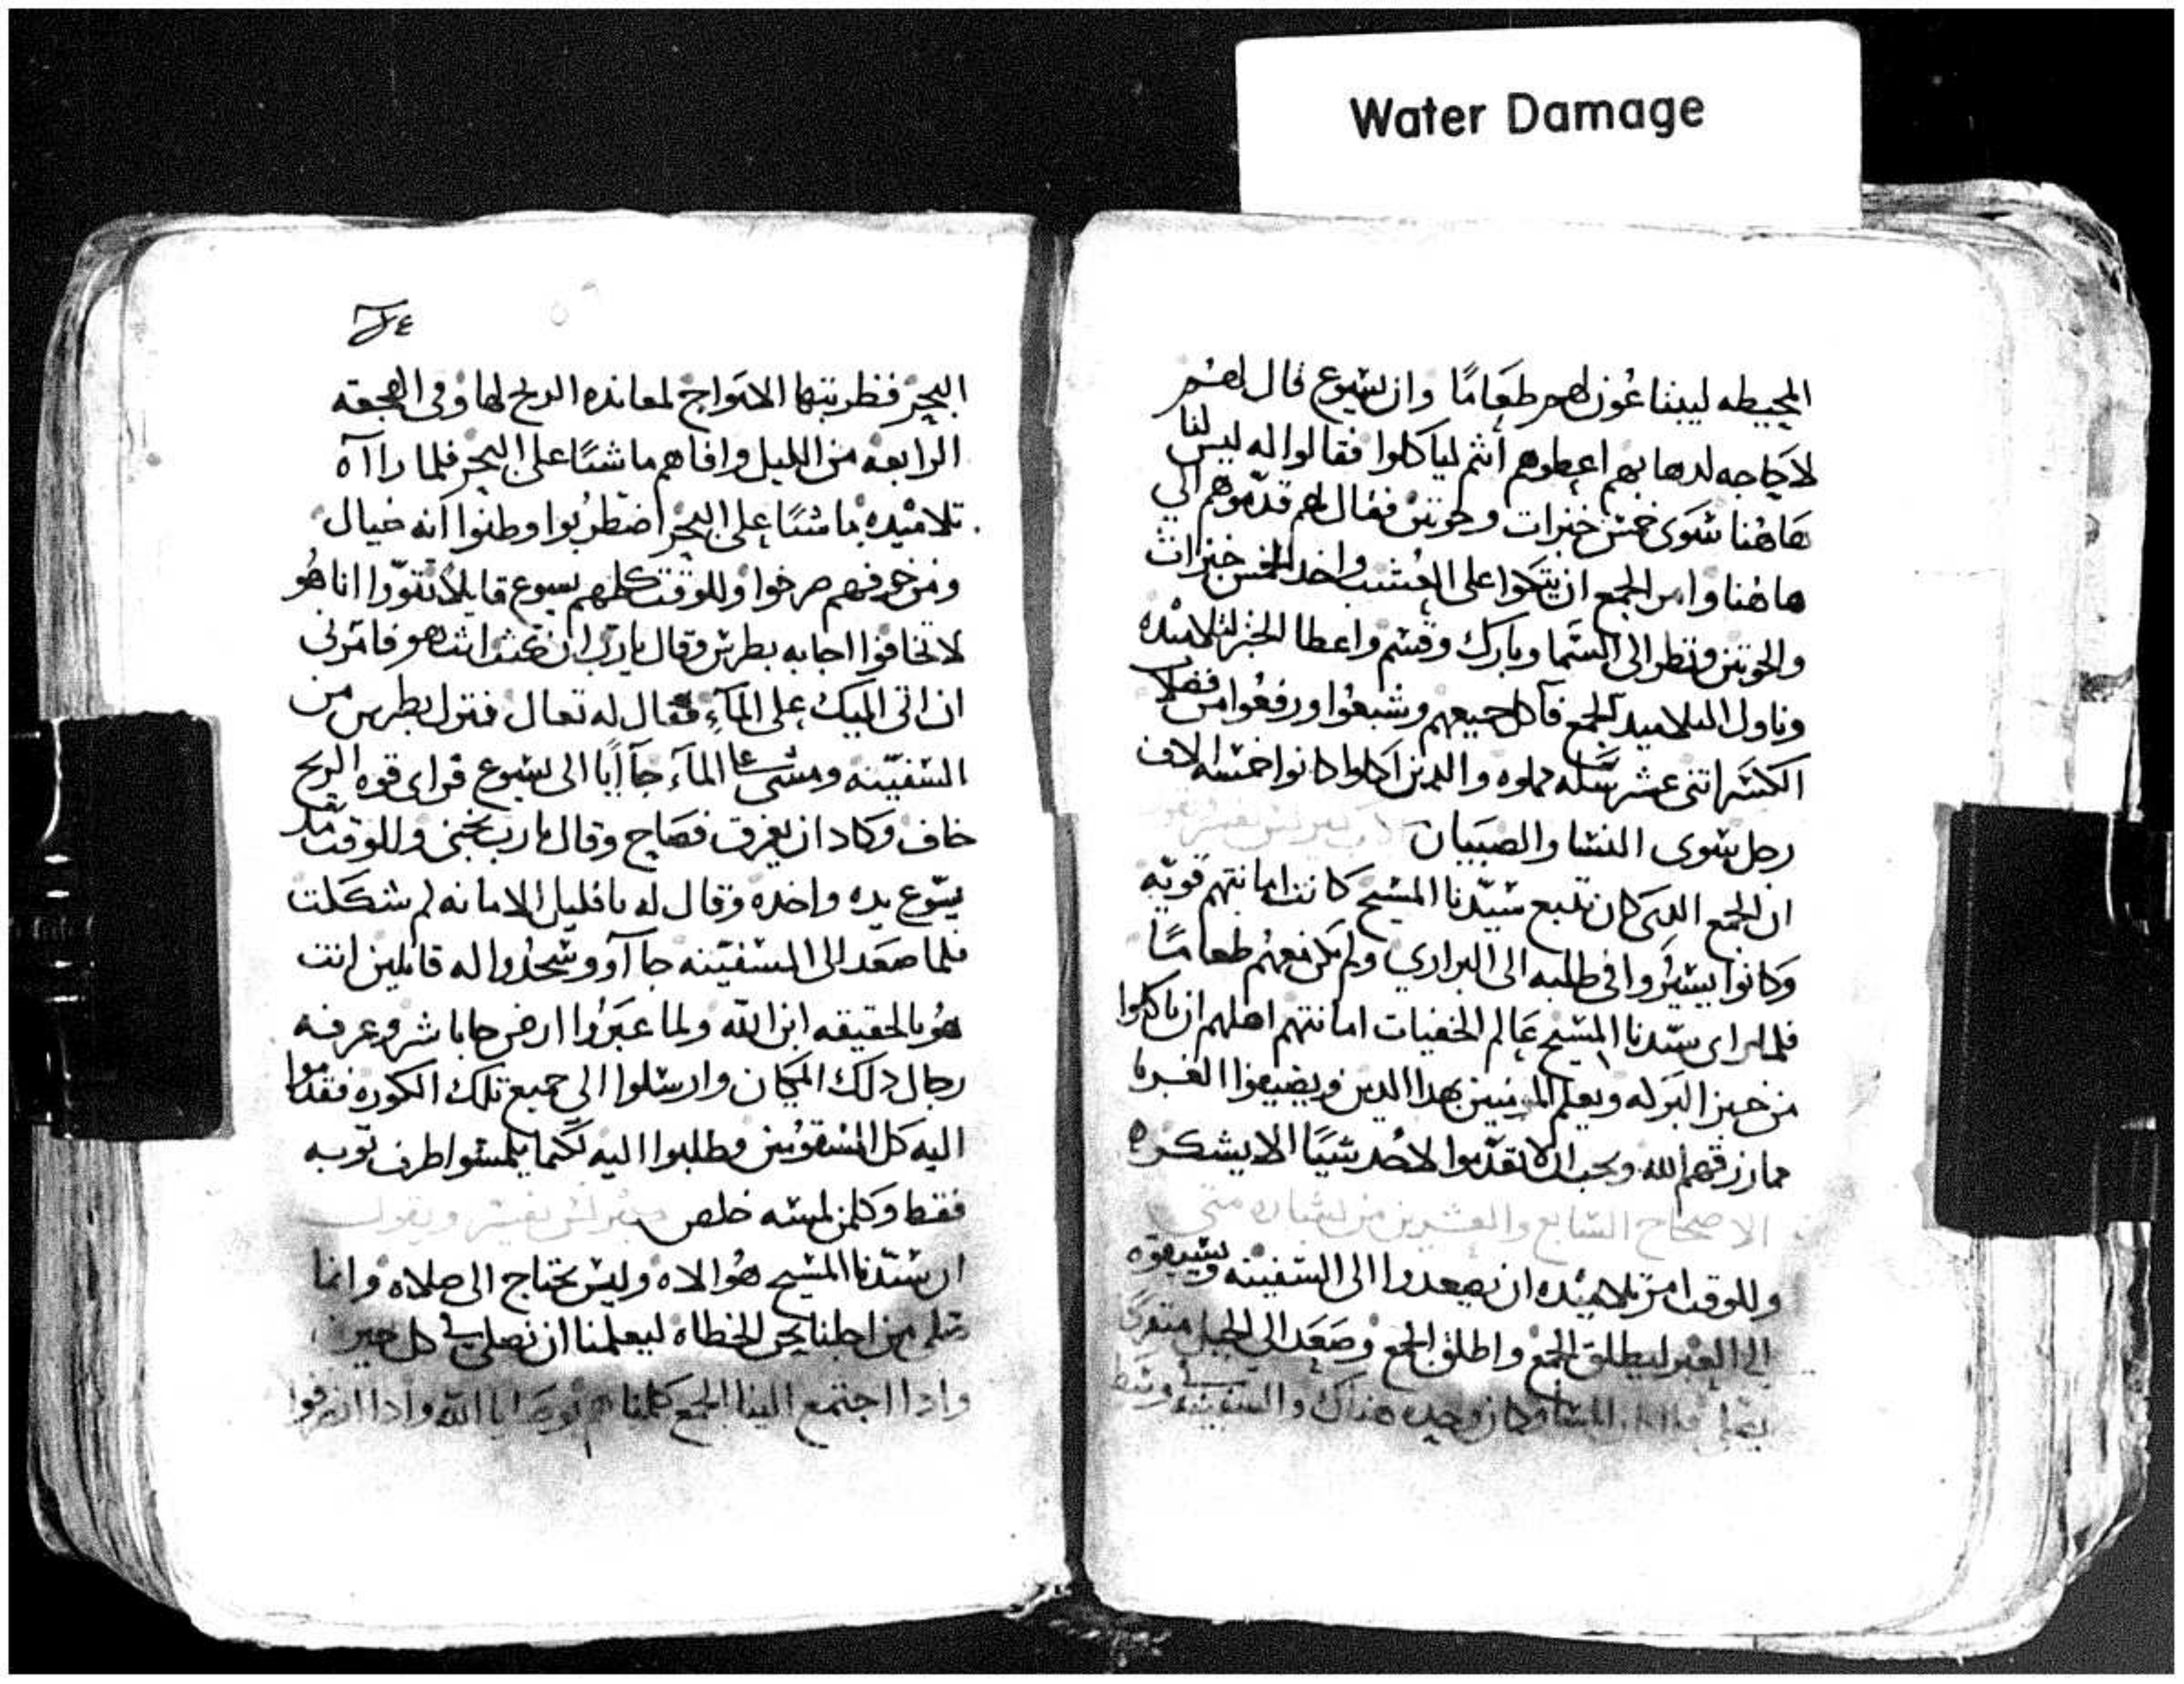 Water Damage
المحيطه ليبتاعون لهم طعامًا وان يسوع قال لهم
لا حاجه لدهابهم اعطوهم أنتم لياكلوا فقالوا له ليس لنا
هاهنا سوى خمس خبزات وحوتين فقال لهم قدّموهم الي
هاهنا وامر الجمع ان يتكوا على العشب واخد الخمس خبزات
والحوتين ونظر الى السما وبارك وقسم واعطا الخبز لتلاميده
وناول التلاميد الجمع فآكل جميعهم وشبعوا ورفعوا من فضلات
الكسر اتنى عشر سله مملوه والدين آكلوا كانوا خمسه الاف
رجل سوى النسا والصبيان
ان الجمع الدى كان تبع سيّدنا المسيح كانت امانتهم قويّه
وكانوا يسيروا في طلبه الى البراري ولم يكن معهم طعامًا
فلما راى سيّدنا المسيح عالم الخفيات امانتهم اهلهم ان ياكلوا
من خبز البركه ويعلم المومنين بهدا الدين ويضيفوا الغربا
مما رزقهم الله ويجب ان لا تقدّموا لاحد شيًا الا يشكره
الاصحاح السابع والعشرين من بشاره متى
وللوقت امر تلاميده ان يصعدوا الى السفينه ويسبقوه
الى العبر ليطلق الجمع واطلق الجمع وصعد الى الجبل منفردًا
يصلي المسا وكان وحده هناك والسفينه في وسط
البحر فضربتها الامواج لمعانده الريح لها وفى الهجعه
الرابعه من الليل وافاهم ماشيًا على البحر فلما راآه
تلاميده ماشيًا على البحر اضطربوا وظنوا انه خيال
ومن خوفهم صرخوا وللوقت كلمهم يسوع قايلًا تقوّوا انا هو
لا تخافوا اجابه بطرس وقال يارب ان كنت انت هو فامرني
ان اتى اليك على المآء فقال له تعال فنزل بطرس من
السفينه ومشى على المآء جآ اياا الى يسوع فراى قوه الريح
خاف وكاد ان يغرق فصاح وقال يارب نجني وللوقت مد
يسوع يده واخده وقال له يا قليل الامانه لم شككت
فلما صعد الى السفينه جاآوو سجدوا له قايلين انت
هو بالحقيقه ابن الله ولما عبروا ارض جاباشر وعرفه
رجال دلك المكان وارسلوا الى جميع تلك الكوره فقدموا
اليه كل المسقومين وطلبوا اليه لكيما يلمسوا طرف توبه
فقط وكلمن لمسه خلص مفرلس يفسر ويقول
ان سيّدنا المسيح هو الاه وليس يحتاج الى صلاه وانما
صلى من اجلنا نحن الخطاه ليعلمنا ان نصلى في كل حين
وادا اجتمع الينا الجمع كلمناهم بوصايا الله وادا انصرفوا